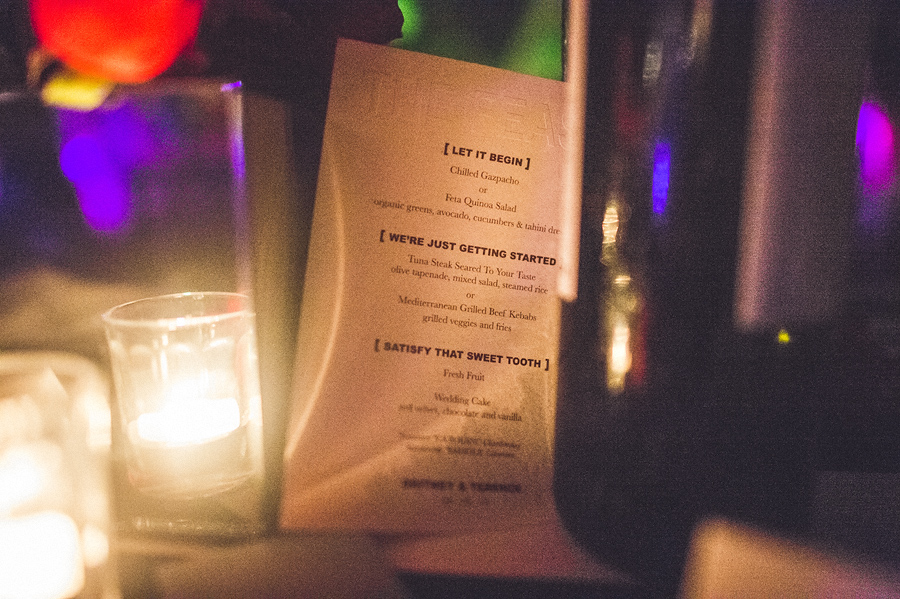 [ LET IT BEGIN ]
Chilled Gazpacho
or
Feta Quinoa Salad
organic greens, avocado, cucumbers & tahini dre
[ WE'RE JUST GETTING STARTED
Tuna Steak Seared To Your Taste
olive tapenade, mixed salad, steamed rice
or
Mediterranean Grilled Beef Kebabs
grilled veggies and fries
[ SATISFY THAT SWEET TOOTH ]
Fresh Fruit
Wedding Cake
red velvet, chocolate and vanilla
BRITNEY & TERENCE